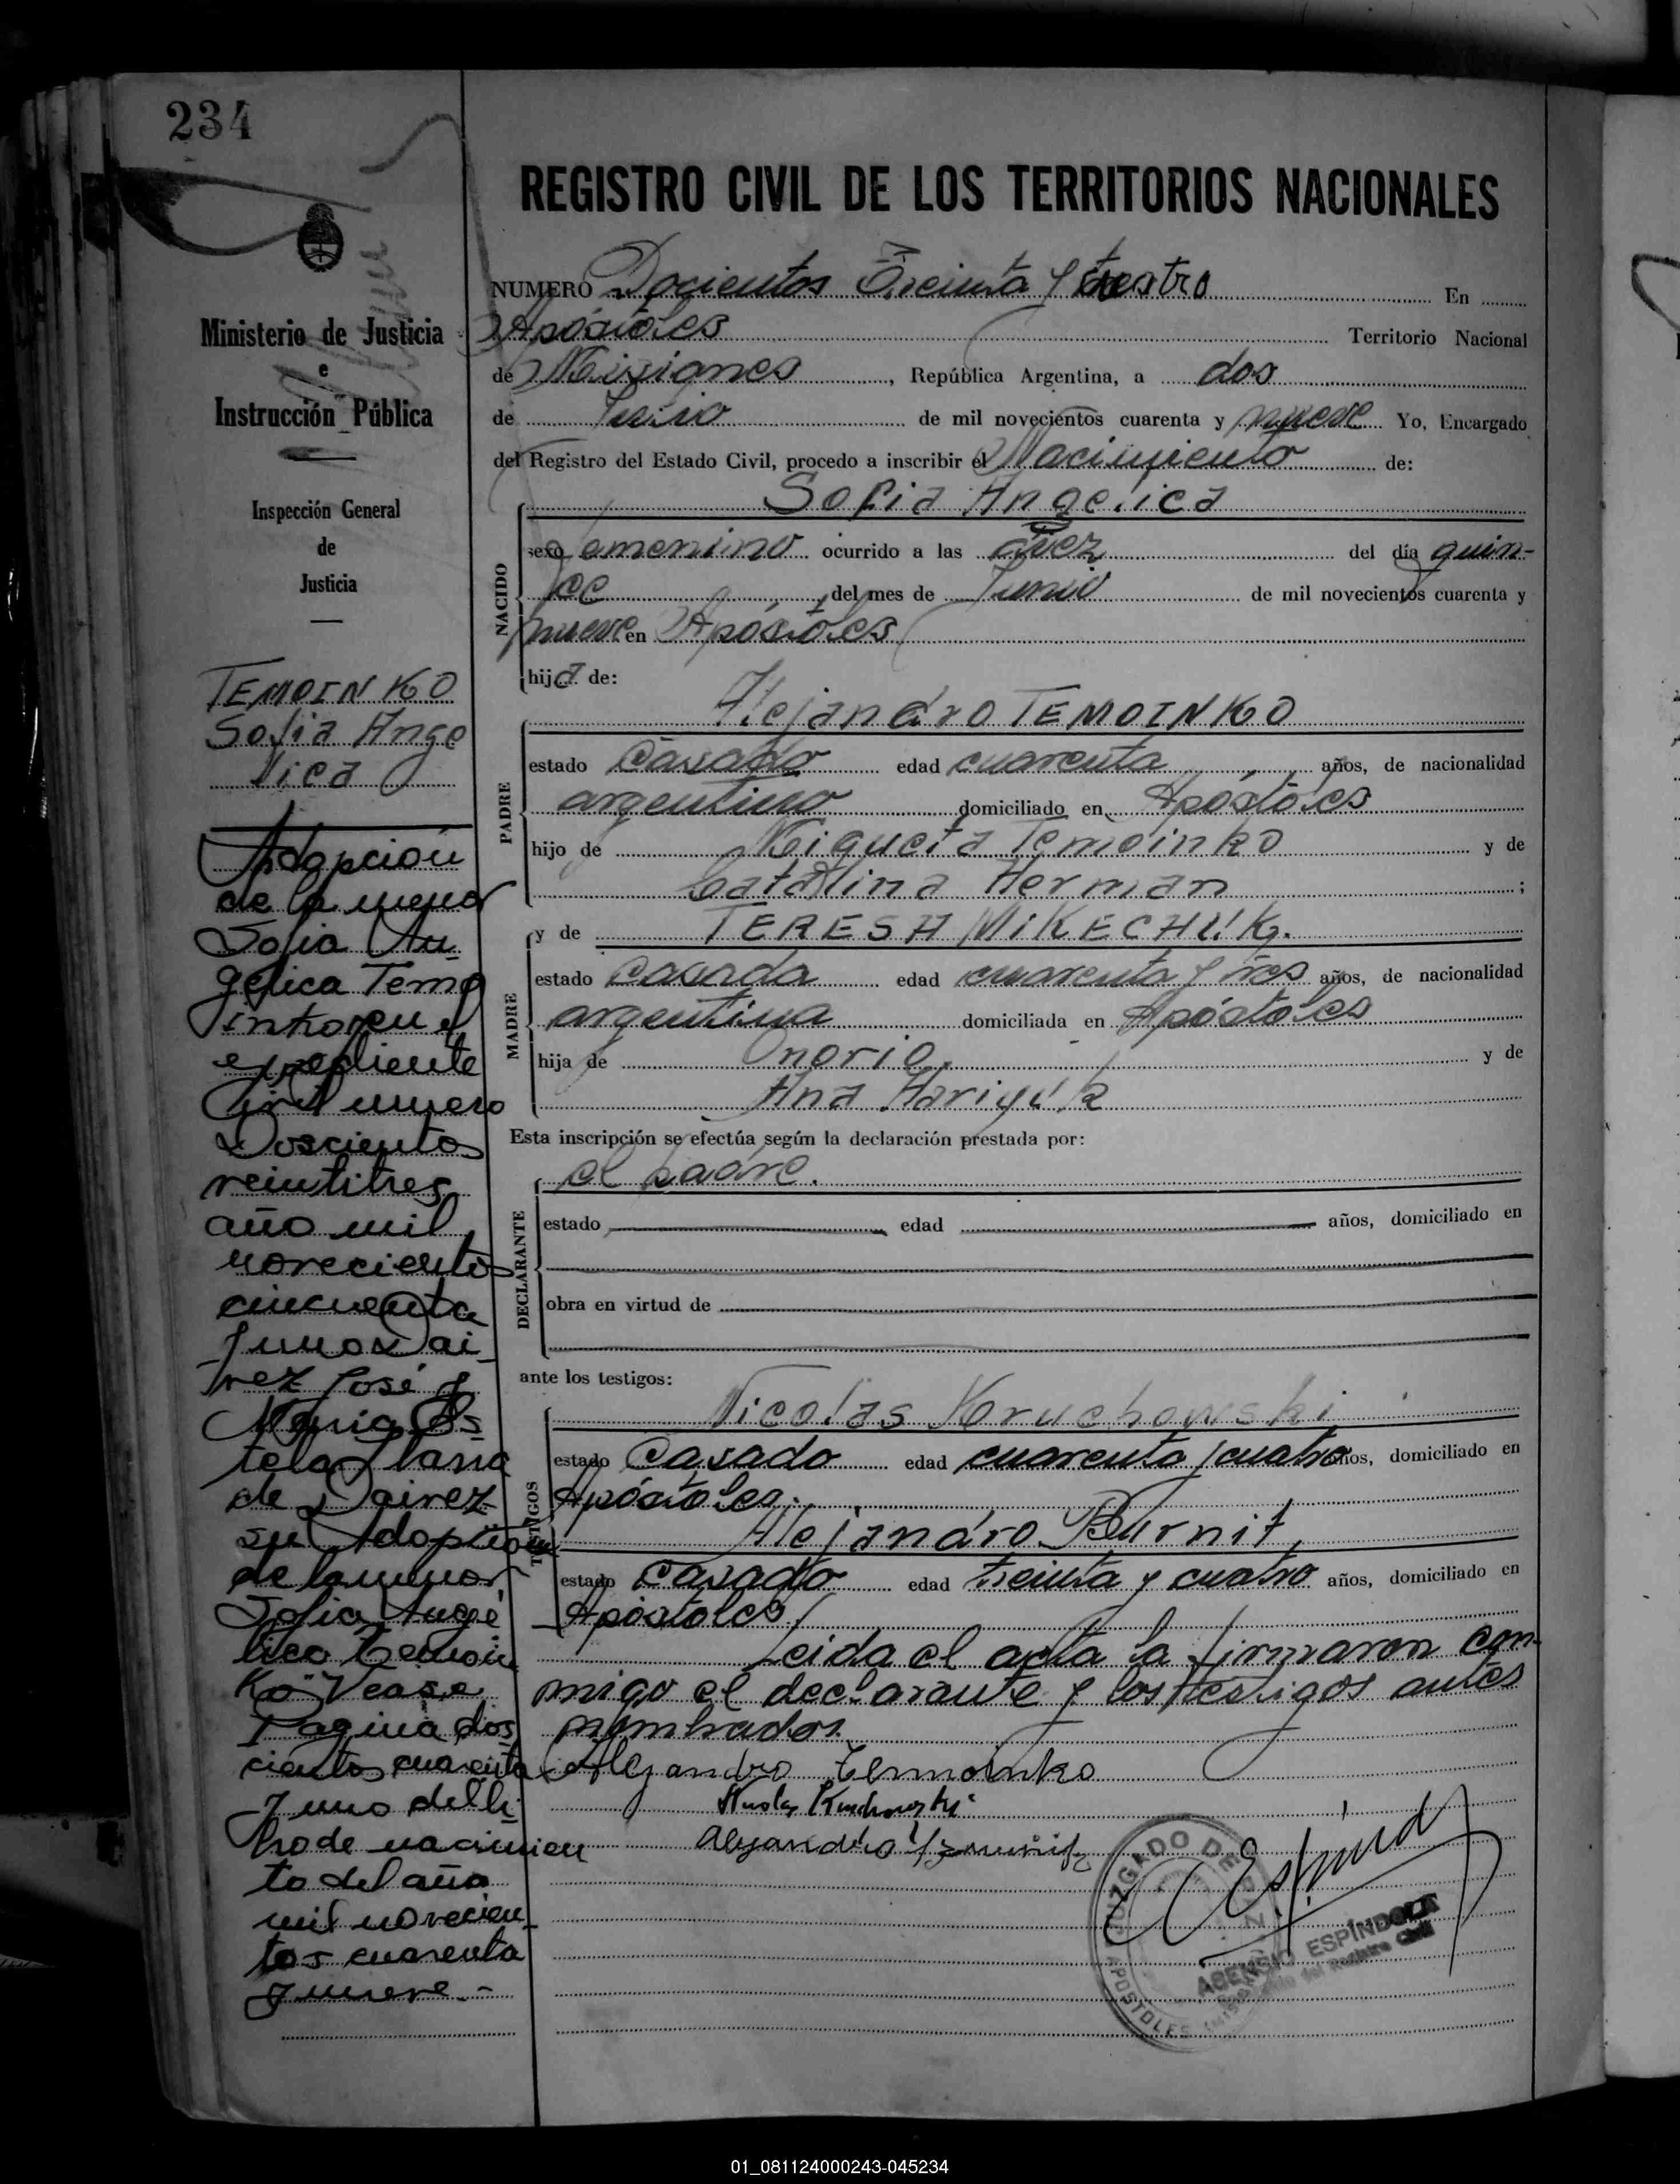 234
REGISTRO CIVIL DE LOS TERRITORIOS NACIONALES
Ministerio de Justicia
e
Instrucción Pública
Inspección General
de
Justicia
TEMOINKO
Sofia Ange
lica
Adopción
de la menor
Sofia An-
gelica Temo
inko, en el
expediente
Civil numero
Doscientos
veintitres
año mil
novecientos
cincuenta
y uno
José y
Maria Es-
tela
de
su Adopción
de la menor
Sofia Angé
lica Temoin
ko" Vease
Pagina dos
cientos cuarenta
y uno del li
bro de nacimien
to del año
mil novecien
tos cuarenta
y nueve.-
NUMERO Docientos Treinta y En
Apóstoles Territorio Nacional
de Misiones, República Argentina, a dos
de Julio de mil novecientos cuarenta y nueve Yo, Encargado
del Registro del Estado Civil, procedo a inscribir el Nacimiento de:
NACIDO
Sofia Angelica
sexo femenino ocurrido a las diez del día quin-
ce del mes de Junio de mil novecientos cuarenta y
nueve en Apóstoles
hija de:
PADRE
Alejandro TEMOINKO
estado Casado edad cuarenta años, de nacionalidad
argentino domiciliado en Apóstoles
hijo de Temoinko y de
Catalina Herman;
MADRE
y de TERESA MIKECHUK.
estado Casada edad cuarenta y tres años, de nacionalidad
argentina domiciliada en Apóstoles
hija de Onorio y de
Ana
Esta inscripción se efectúa según la declaración prestada por:
el padre.
DECLARANTE
estado edad años, domiciliado en
obra en virtud de
ante los testigos:
TESTIGOS
Nicolas Kruchowski
estado Casado edad cuarenta y cuatro años, domiciliado en
Apóstoles.
Alejandro Burnit
estado Casado edad treinta y cuatro años, domiciliado en
Apóstoles
Leida el acta la firmaron con-
migo el declarante y los testigos antes
nombrados.
Alejandro Temoinko
JUZGADO DE PAZ
APOSTOLES
ASENSIO ESPÍNDOLA
del Registro Civil
01_081124000243-045234